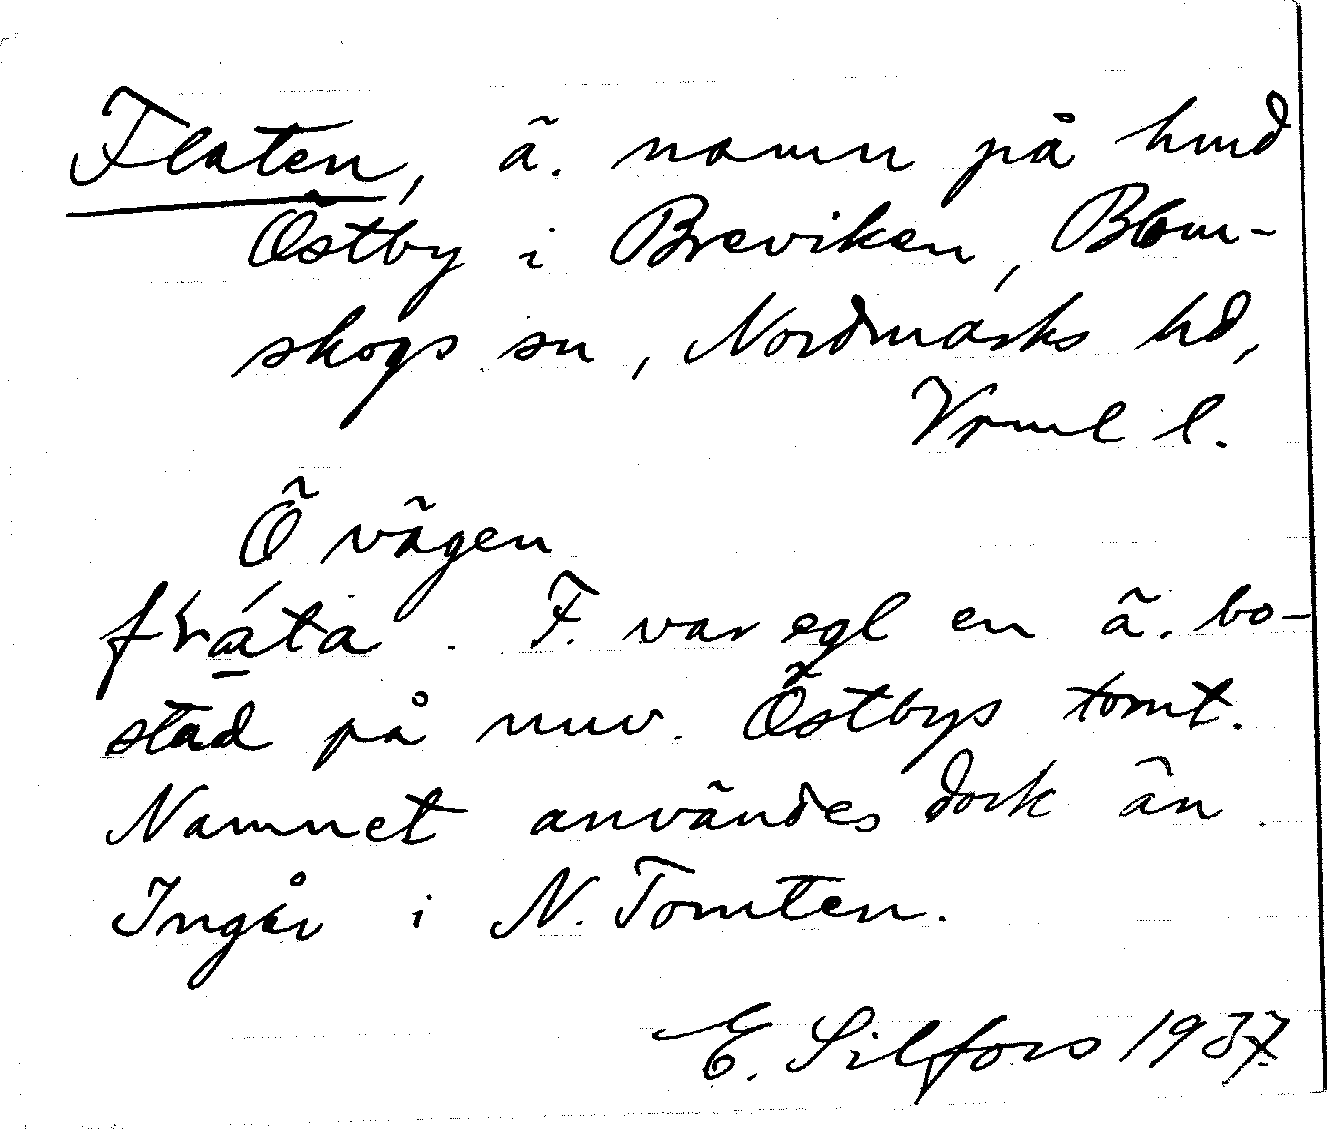 Flaten, ä. namn på hmd
Östby i Breviken, Blom-
skogs sn, Nordmarks hd,
Vrml l.
Ö vägen
fráta. F. var egl en ä. bo-
stad på nuv. Östbys tomt.
Namnet användes dock än
Ingår i N. Tomten.
E. Silfors 1937